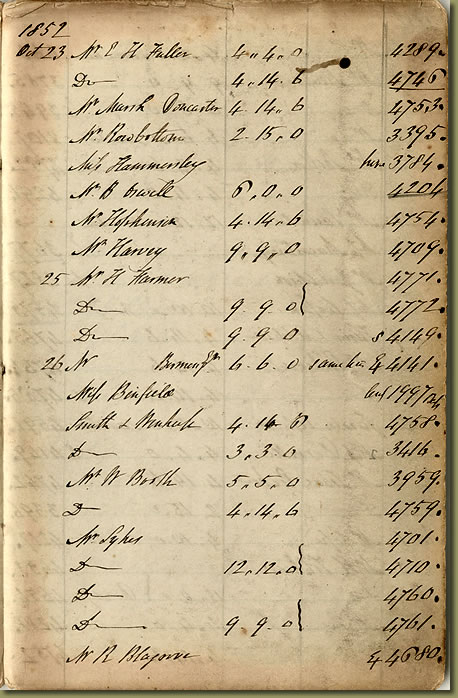 1852
Oct 23 Mr E H Fuller 4 " 4 " 0 4289.
Do 4 . 14 . 6 4746
Mr Marsh Doncaster 4 . 14 . 6 4753.
Mr Rowbottom 2 . 15 . 0 3395.
Miss Hammersley hire 3784.
Mr B 6 . 0 . 0 4204
Mr Hopkinson 4 . 14 . 6 4754.
Mr Harvey 9 " 9 " 0 4709.
25 Mr H Farmer 4771.
Do 9 . 9 . 0 4772.
Do 9 . 9 0 4149.
26 Mr 6 . 6 . 0 4141.
Miss Binfield 1997
Smith & 4 . 14 6 4758.
Do 3 , 3 . 0 3416.
Mr W Booth 5 . 5 . 0 3959.
Do 4 . 14 . 6 4759.
Mr Sykes 4701.
Do 12 . 12 . 0 4710.
Do 4760.
Do 9 . 9 . 0 4761.
Mr R Blagrove 4680.